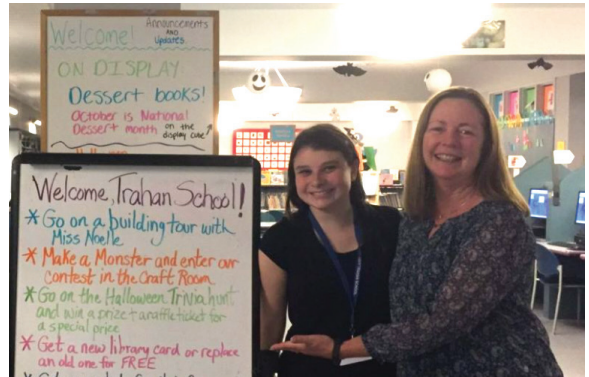 Welcome!
Announcements
AND
Updates.
ON DISPLAY:
Dessert books!
October is National
Dessert month
on the
display cube!
Welcome, Trahan School!
* Go on a building tour with
Miss Noelle
* Make a Monster and enter our
contest in the Craft Room
* Go on the Halloween Trivia hunt
and win a prize + a raffle ticket for
a special price
* Get a new library card or replace
an old one for FREE